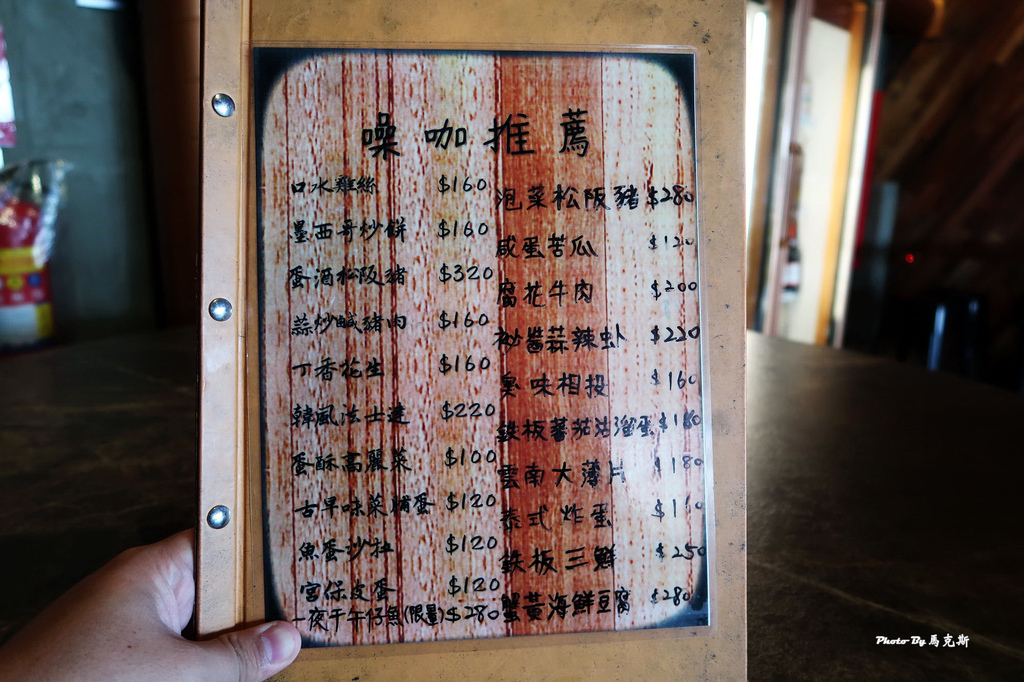 噪咖推薦
口水雞絲 $160
墨西哥炒餅 $160
蛋酒松阪豬 $320
蒜炒鹹豬肉 $160
丁香花生 $160
韓風法士達 $220
蛋酥高麗菜 $100
古早味菜脯蛋 $120
魚蛋沙拉 $120
宮保皮蛋 $120
一夜干午仔魚(限量) $280
泡菜松阪豬 $280
咸蛋苦瓜 $120
腐花牛肉 $200
醬蒜辣虾 $220
臭味相投 $160
鉄板蕃茄滑溜蛋
雲南大薄片 $180
泰式炸蛋
鉄板三鮮 $250
蟹黃海鮮豆腐 $280
Photo By 馬克斯